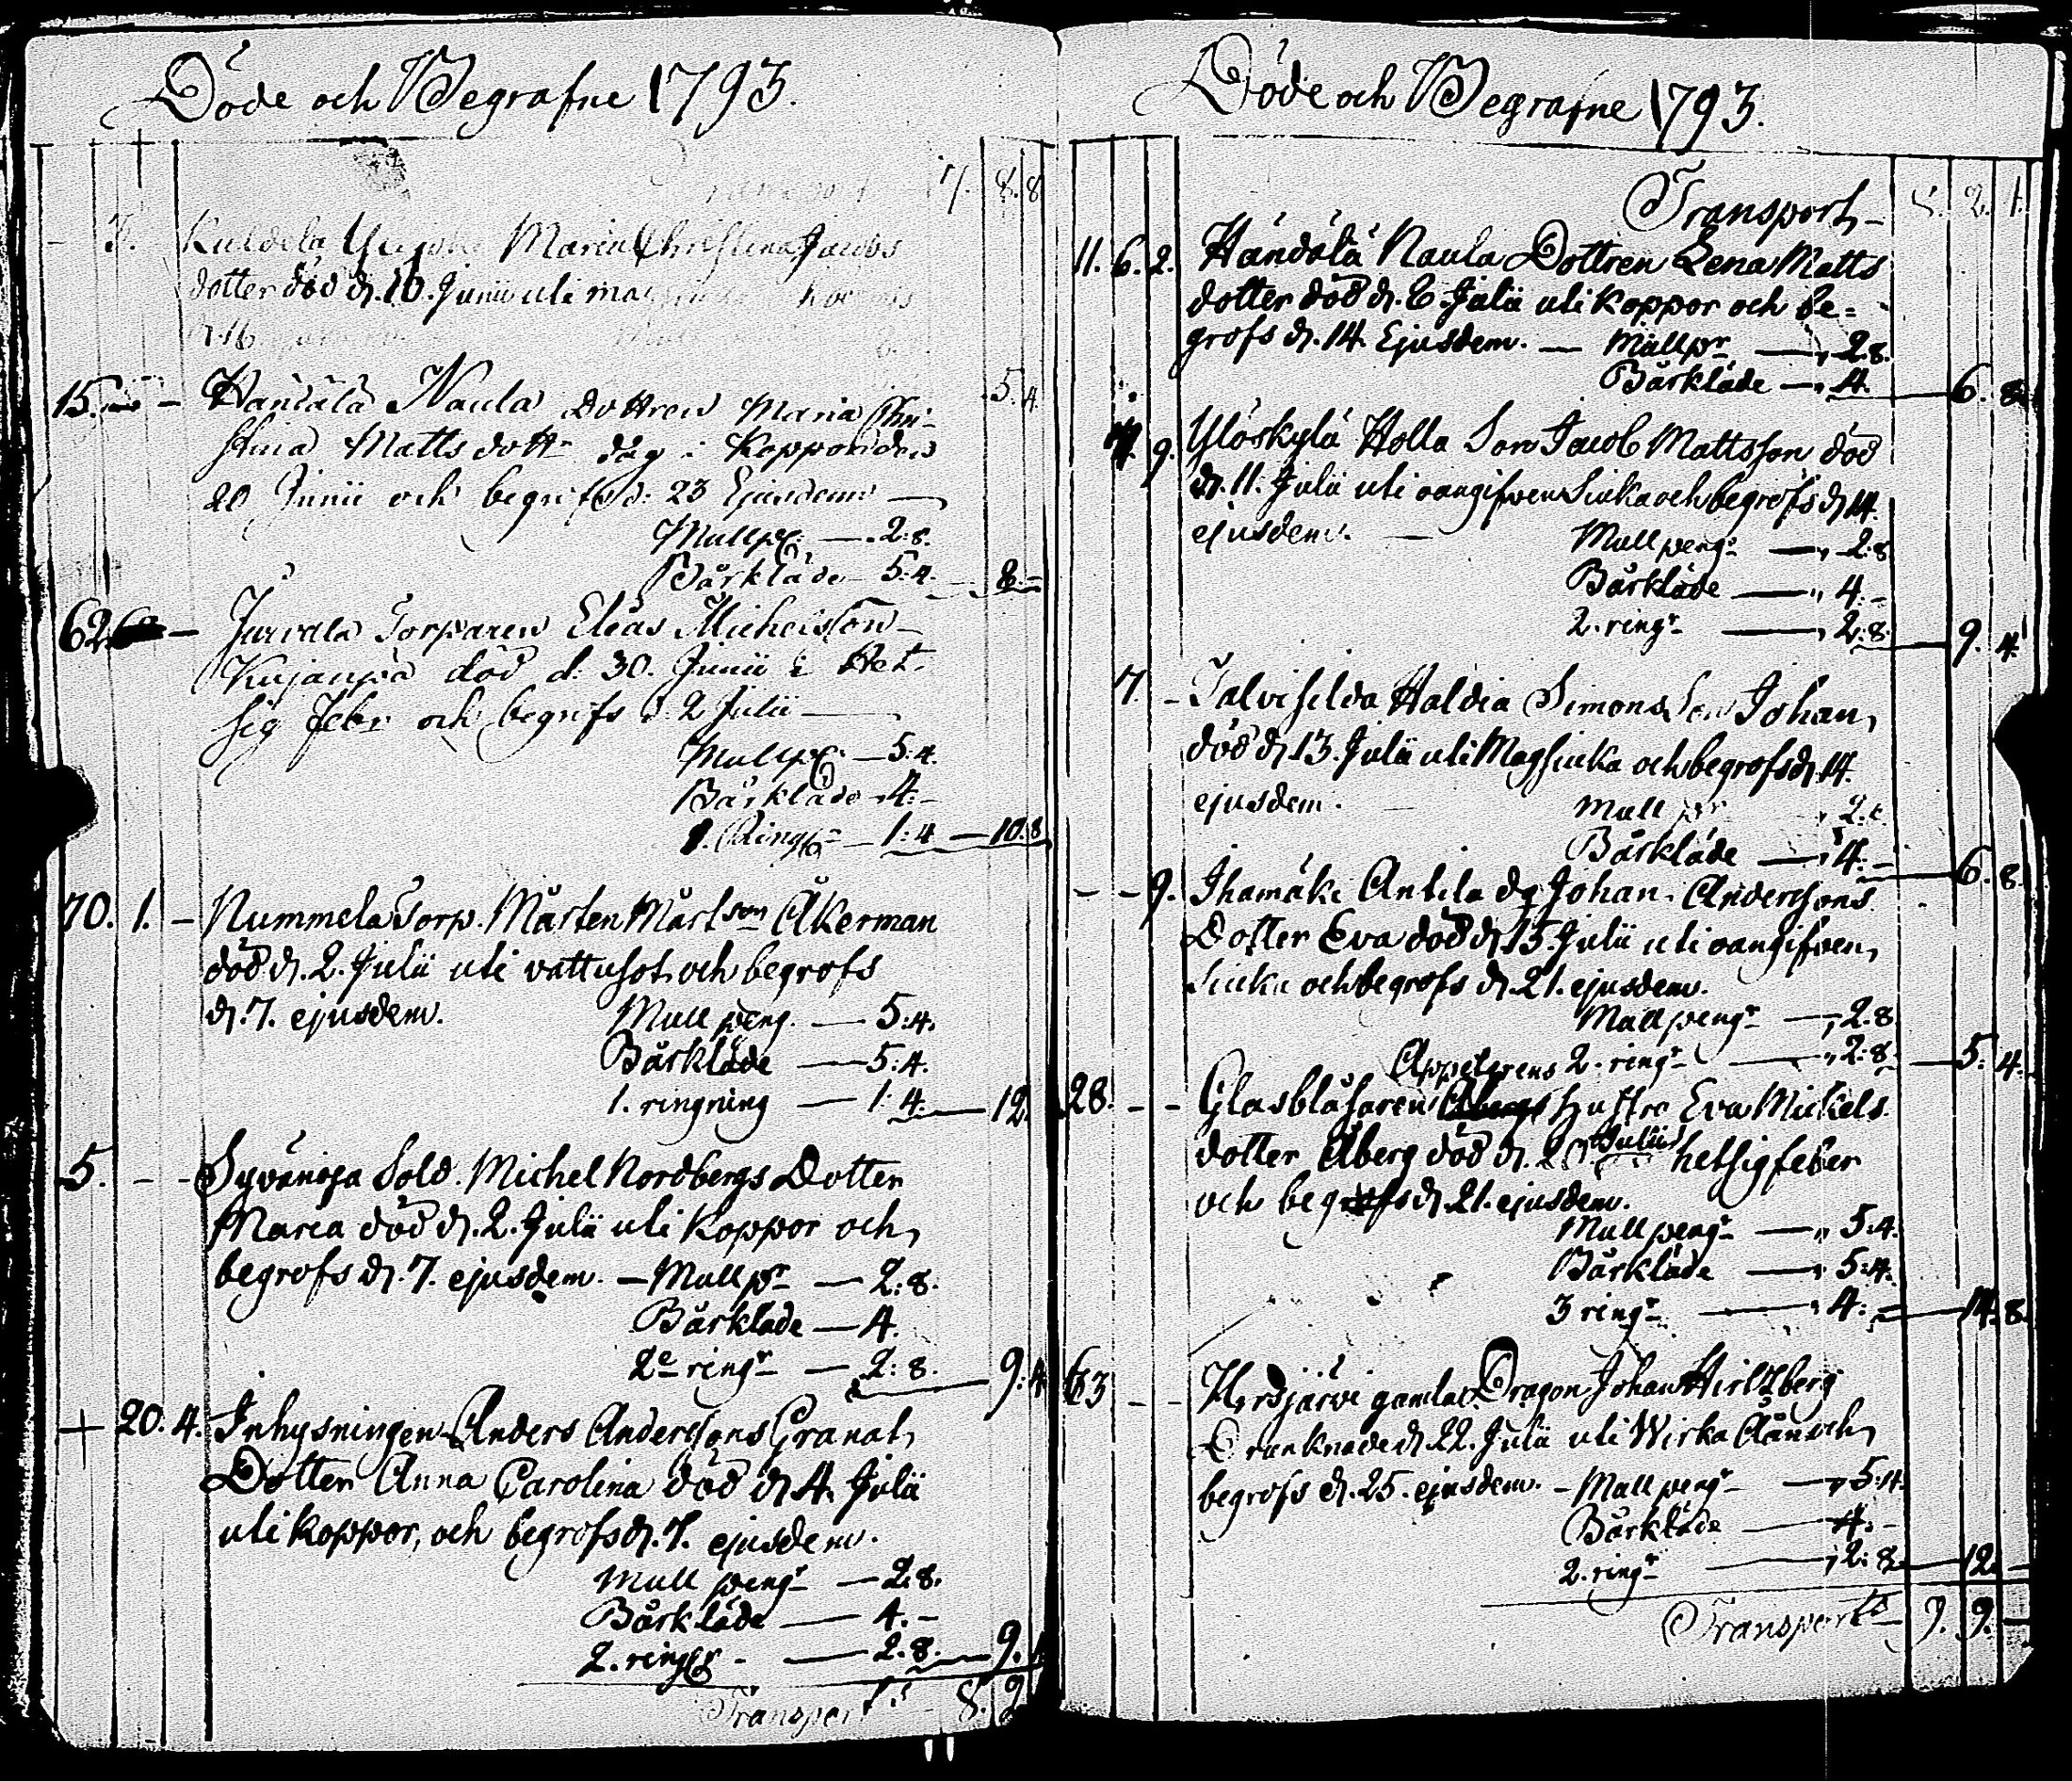 Döde och Begrafne 1793.
7. 8. 8
3. Kuldela Maria Christina Jacobs
dotter död d. 10. Junii uti
d. 16
5. 4.
15. Handälä Naula Dottren Maria Chri-
stina Matts dottr dög i Koppor den
20 Junii och begrofs d: 23 Ejusdem
Mullp. — 2:8.
Bårkläde — 5:4. — 8. —
62. Torparen Elias Michelsson
Kujanpä död d. 30. Junii i Het-
sig febr och begrofs d. 2 Julii
Mullp. — 5:4.
Bårkläde — 4. —
1. Ring — 1:4 — 10. 8
70. 1. — Nummela Torp. Mårten Mårtson Åkerman
död d. 2. Julii uti vattusot och begrofs
d. 7. ejusdem. Mull peng. — 5:4.
Bårkläde — 5:4.
1. ringning — 1:4. — 12.
5. — — Syvänoja Sold. Michel Nordbergs Dotter
Maria död d. 2. Julii uti koppor och
begrofs d. 7. ejusdem. — Mull pr — 2:8.
Bårkläde — 4.
2e ringr — 2:8. — 9:4
+ 20. 4. Inhysningen Anders Anderssons Granat
Dotter Anna Carolina död d. 4. Julii
uti koppor, och begrofs d. 7. ejusdem.
Mull pengr — 2:8.
Bårkläde — 4. —
2. ring — 2:8. — 9.
Transport 8. 2
Döde och Begrafne 1793.
Transport — 8. 2. 1.
11. 6. 2. Handälä Naula Dottren Lena Matts
dotter död d. 6. Julii uti koppor och be=
grofs d. 14. Ejusdem. — Mull pr — 2:8.
Bårkläde — 4. — 6. 8.
9. Ylöskylä Holla Son Jacob Mattsson död
d. 11. Julii uti oangifven Siuka och begrofs d. 14.
ejusdem. — Mull pengr — 2:8
Bårkläde — 4. —
2. ringr — 2:8. — 9. 4.
7. — Talviselda Haldia Simons Son Johan,
död d. 13. Julii uti Magsiuka och begrofs d. 14.
ejusdem. Mull pr 2:8.
Bårkläde — 4. — 6. 8.
— — 9. Ihamäki Antila dg Johan Anderssons
Dotter Eva död d. 15. Julii uti oangifven
Siuka och begrofs d. 21. ejusdem.
Mull pengr — 2:8
2. ringr — 2:8. — 5. 4.
28. — — Glasblåsaren hustro Eva Mickels
dotter Åberg död d. Julii hetsig feber
och begrofs d. 21. ejusdem.
Mull pengr — 5:4.
Bårkläde — 5:4.
3 ringr — 4. — 14. 8.
63 — — gamla Dragon Johan Hirltzberg
Drunknade d. 22. Julii uti Wirka Åån och
begrofs d. 25. ejusdem. — Mull pengr — 5:4.
Bårkläde — 4. —
2. ringr — 2:8. — 12. —
Transport 9. 9. —